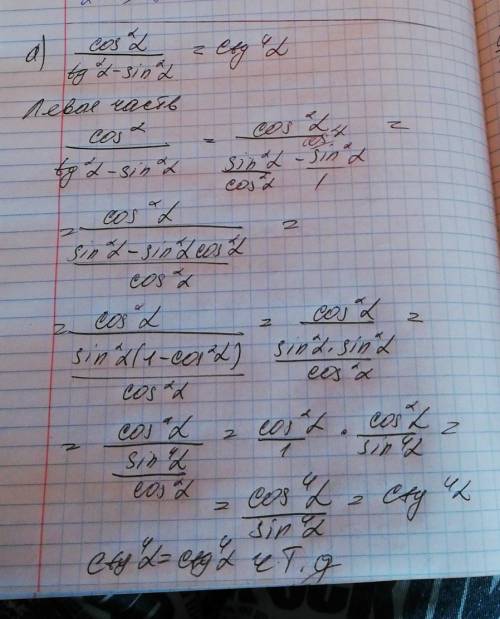 а) cos²α / (tg²α − sin²α) = ctg⁴α
Левое часть
cos²α / (tg²α − sin²α) = cos²α / (sin²α/cos²α − sin²α/1) =
= cos²α / ((sin²α − sin²α cos²α) / cos²α) =
= cos²α / (sin²α(1 − cos²α) / cos²α) = cos²α / (sin²α · sin²α / cos²α) =
= cos²α / (sin⁴α / cos²α) = cos²α/1 · cos²α/sin⁴α =
= cos⁴α / sin⁴α = ctg⁴α
ctg⁴α = ctg⁴α ч.т.д